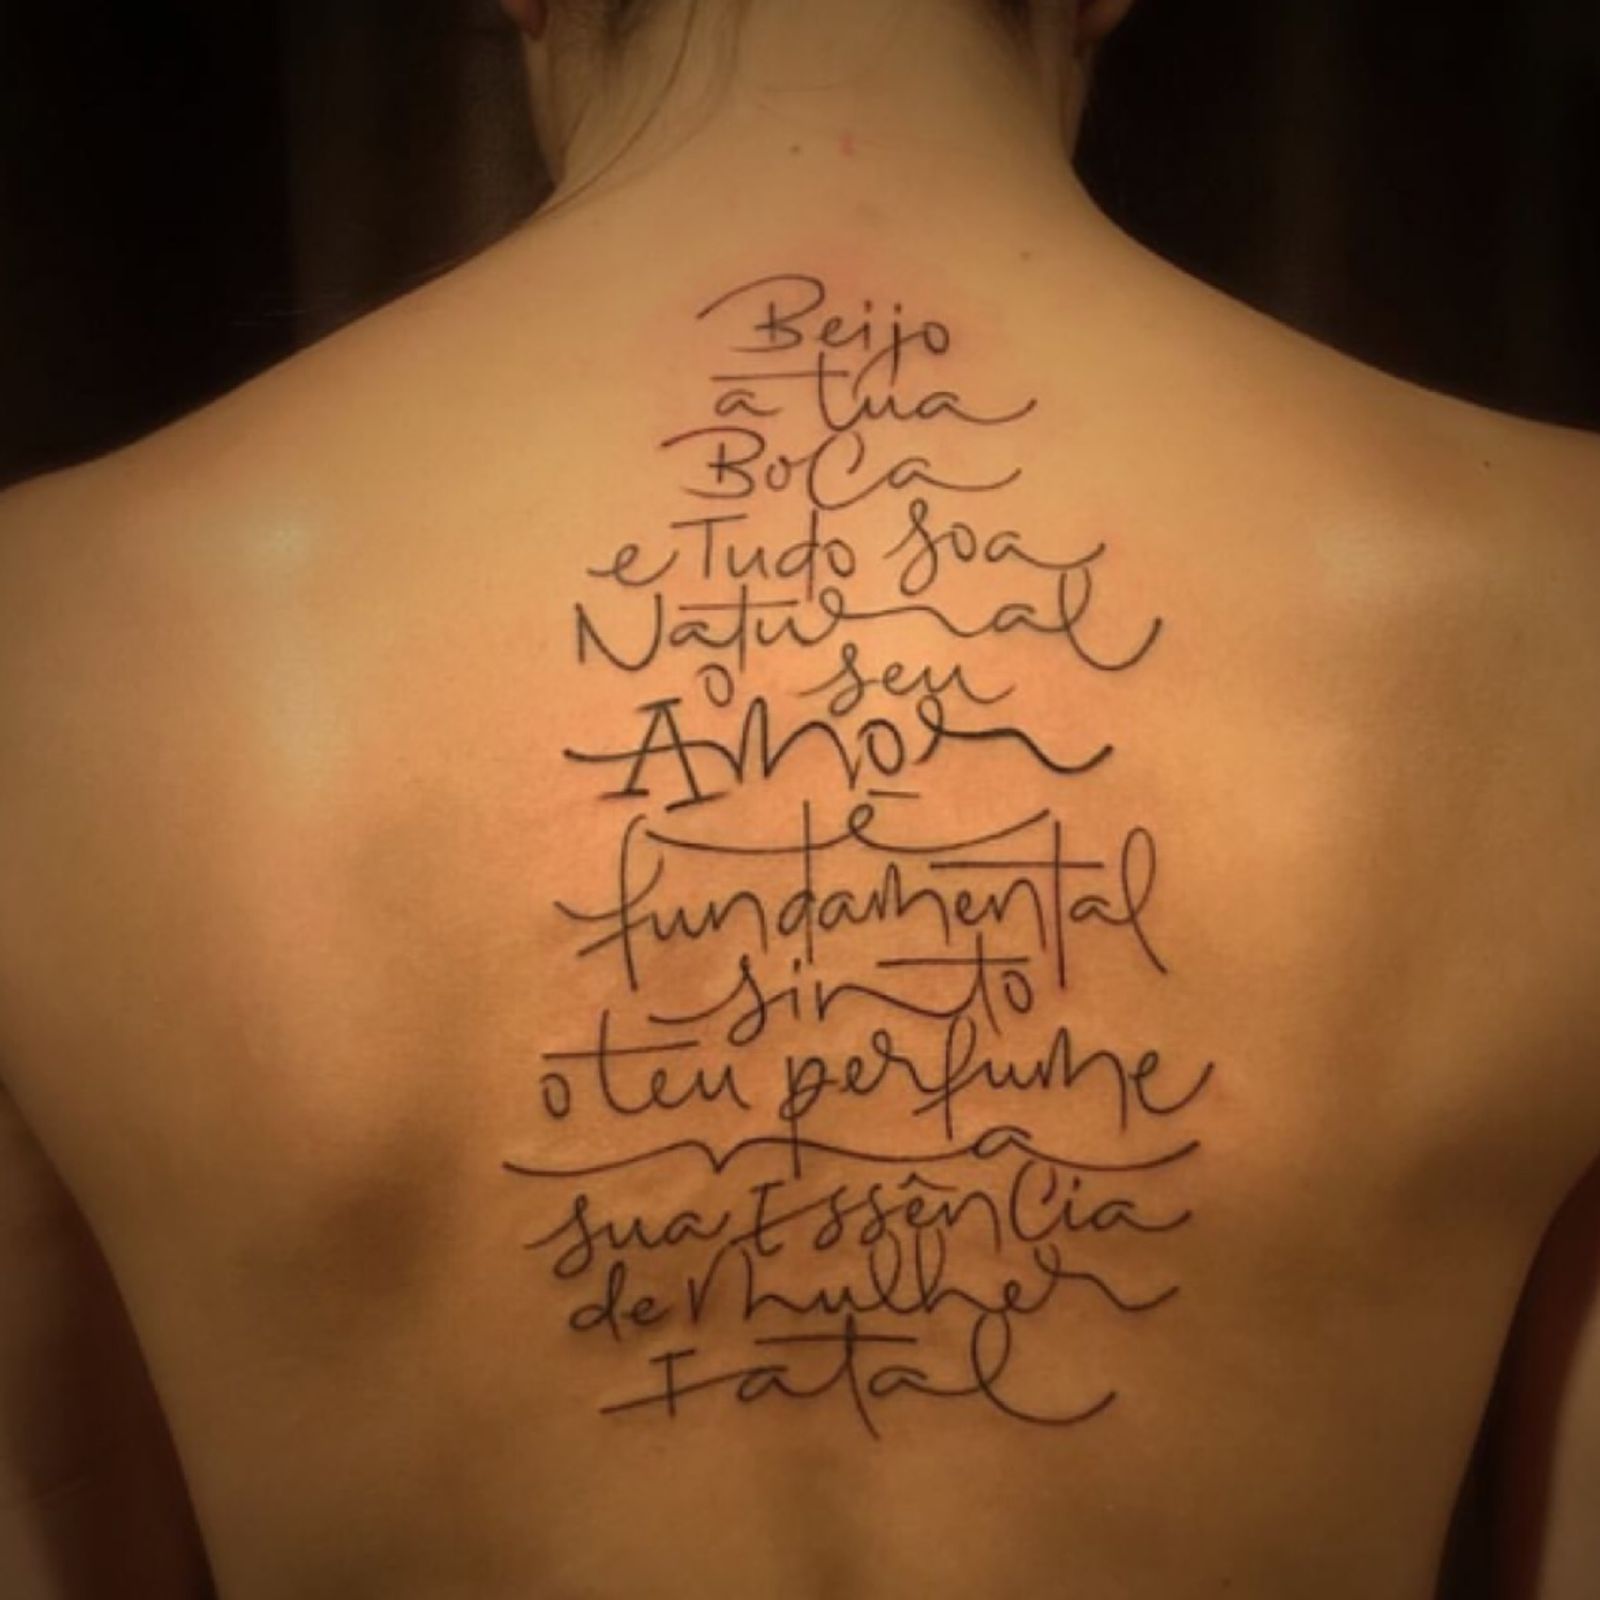 Beijo
a tua
Boca
e Tudo soa
Natural
o seu
Amor
é
fundamental
sinto
o teu perfume
a
sua Essência
de Mulher
Fatal